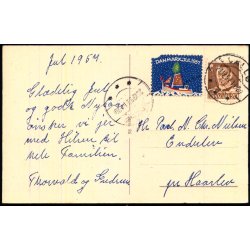 Jul 1957.
Glædelig Jul
og godt Nytaar
ønsker vi jer
med Hilsen til
hele Familien.
Thorvald &
DANMARK JUL 1957
Hr. Chr. Nielsen
Enderslev
pr. Haarlev